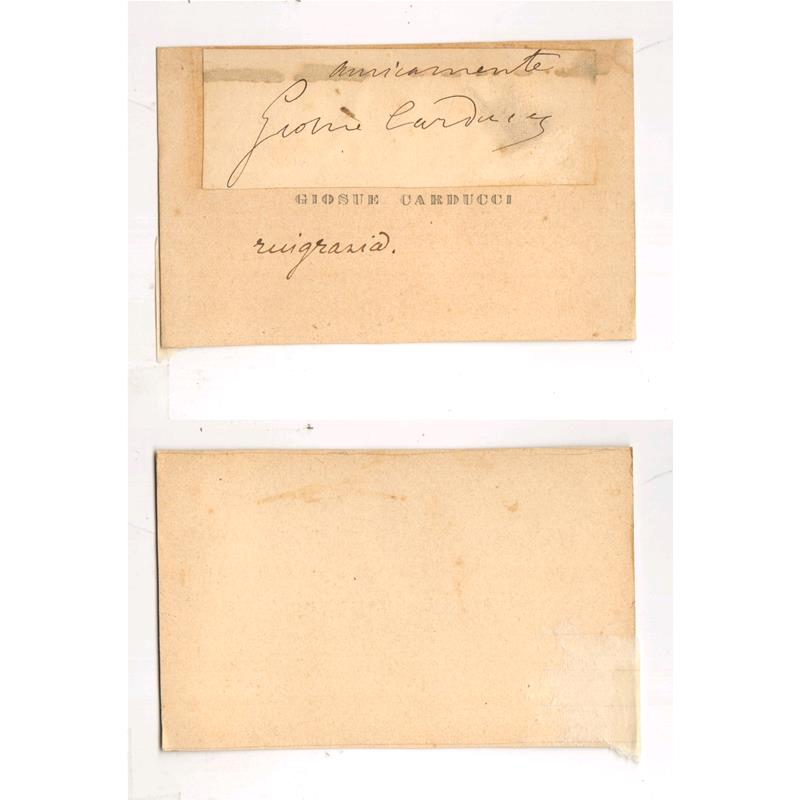 amicamente
Giosue Carducci
GIOSUE CARDUCCI
ringrazia.